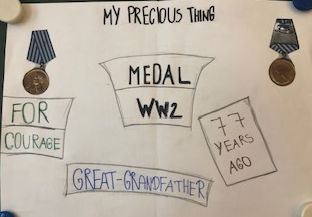 MY PRECIOUS THING
MEDAL
WW2
FOR
COURAGE
77
YEARS
AGO
GREAT-GRANDFATHER